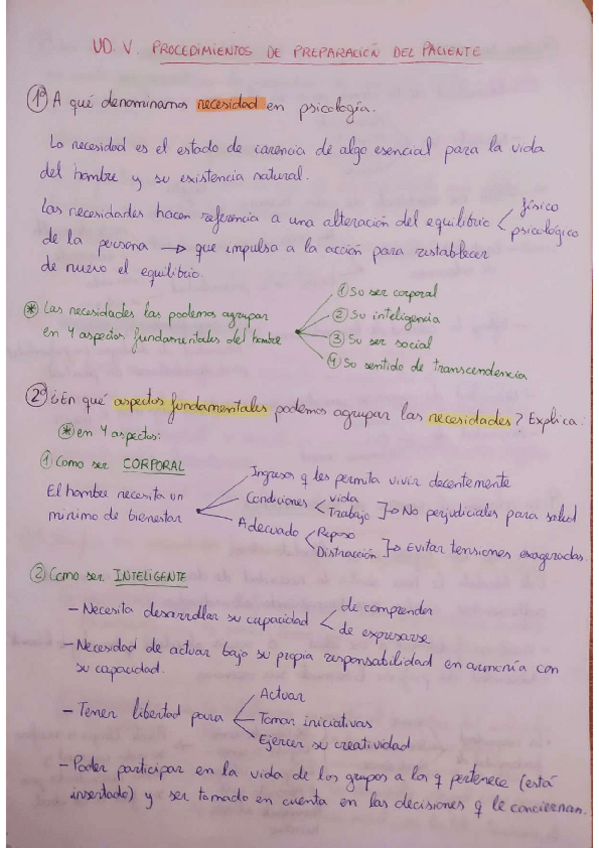 UD. V. PROCEDIMIENTOS DE PREPARACIÓN DEL PACIENTE
1º A qué denominamos necesidad en psicología.
La necesidad es el estado de carencia de algo esencial para la vida
del hombre y su existencia natural.
Las necesidades hacen referencia a una alteración del equilibrio < físico
psicológico
de la persona → que impulsa a la acción para restablecer
de nuevo el equilibrio.
* Las necesidades las podemos agrupar
en 4 aspectos fundamentales del hombre
① Su ser corporal
② Su inteligencia
③ Su ser social
④ Su sentido de transcendencia
2º ¿En qué aspectos fundamentales podemos agrupar las necesidades? Explica:
* en 4 aspectos:
① Como ser CORPORAL
El hombre necesita un
mínimo de bienestar
Ingresos q les permita vivir decentemente
Condiciones < vida
Trabajo ]→ No perjudiciales para salud
Adecuado < Reposo
Distracción ]→ Evitar tensiones exageradas.
② Como ser INTELIGENTE
- Necesita desarrollar su capacidad < de comprender
de expresarse
- Necesidad de actuar bajo su propia responsabilidad en armonía con
su capacidad.
- Tener libertad para
Actuar
Tomar iniciativas
Ejercer su creatividad
- Poder participar en la vida de los grupos a los q pertenece (está
insertado) y ser tomado en cuenta en las decisiones q le conciernan.